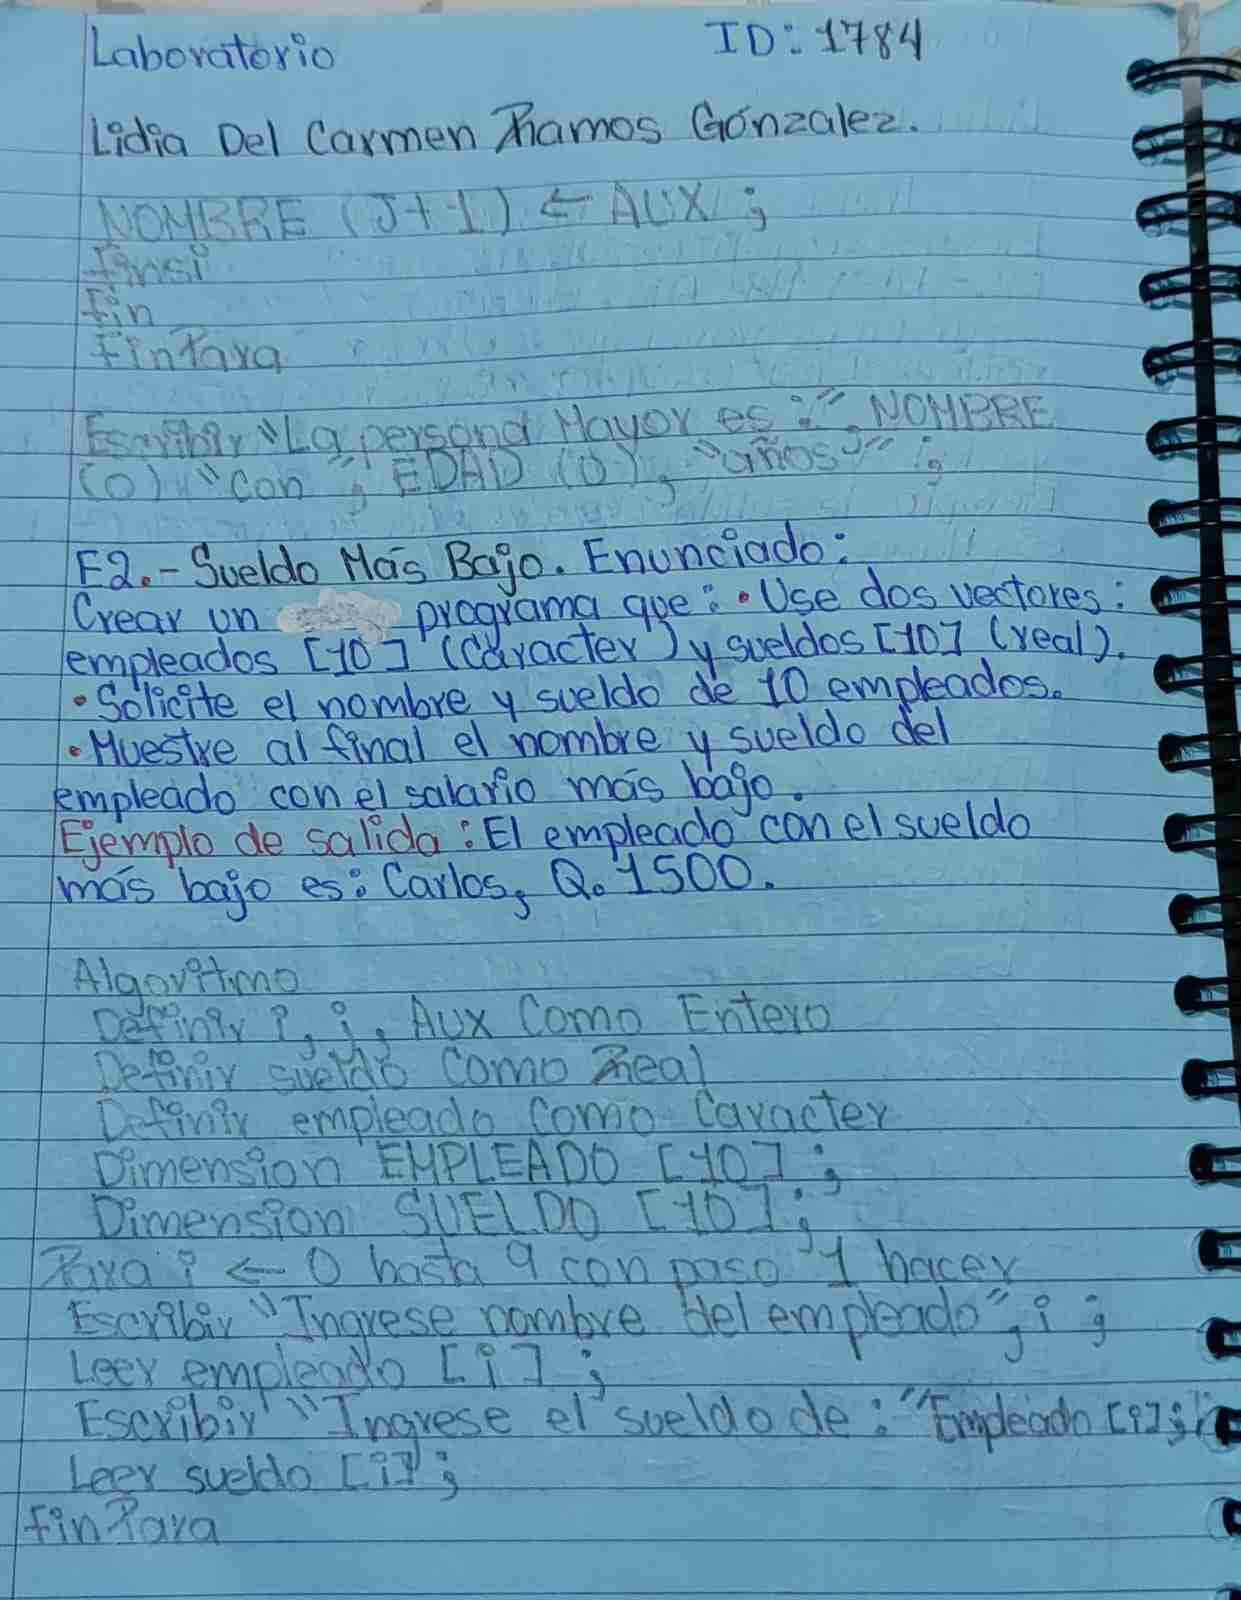 Laboratorio ID: 1784
Lidia Del Carmen Ramos Gónzalez.
NOMBRE (J+1) ← AUX ;
finsi
fin
FinPara
Escribir "La persona Mayor es :", NOMBRE
(0) "Con", EDAD (0), "años" ;
E2.- Sueldo Más Bajo. Enunciado:
Crear un programa que: • Use dos vectores:
empleados [10] (Caracter) y sueldos [10] (real).
• Solicite el nombre y sueldo de 10 empleados.
• Muestre al final el nombre y sueldo del
empleado con el salario más bajo.
Ejemplo de salida: El empleado con el sueldo
más bajo es: Carlos, Q. 1500.
Algoritmo
Definir i, j, Aux Como Entero
Definir sueldo Como Real
Definir empleado Como Caracter
Dimension EMPLEADO [10] ;
Dimension SUELDO [10] ;
Para i ← 0 hasta 9 con paso 1 hacer
Escribir "Ingrese nombre del empleado", i ;
Leer empleado [i] ;
Escribir "Ingrese el sueldo de: "Empleado [i];
Leer sueldo [i] ;
finPara